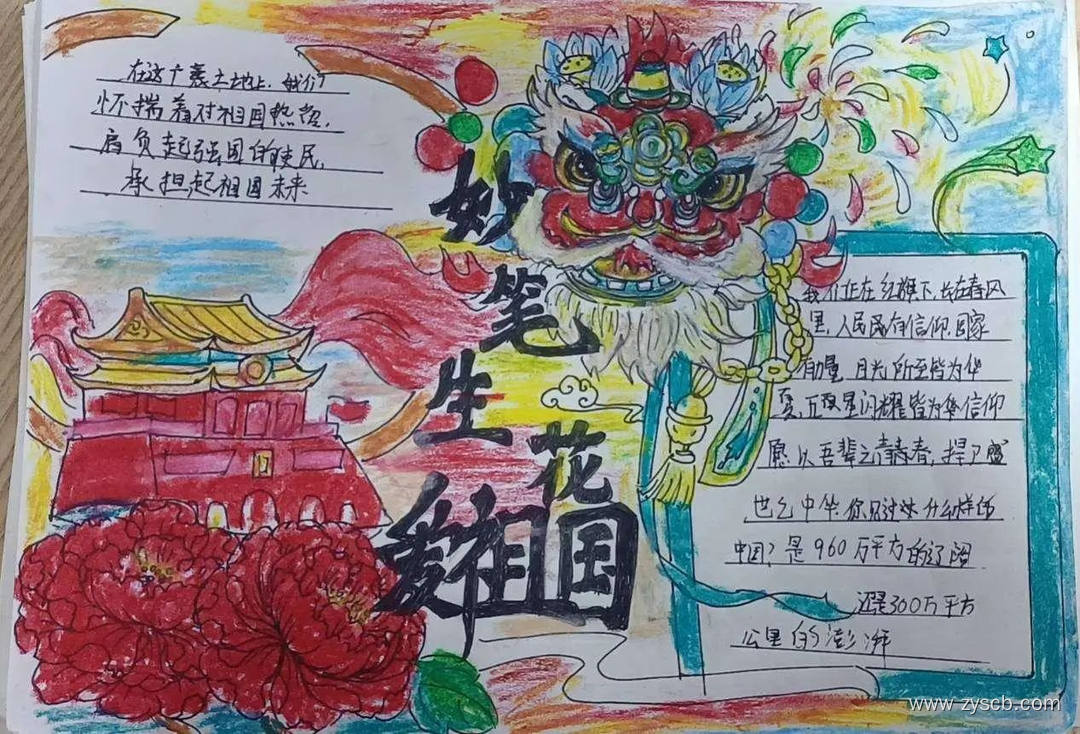 在这广袤土地上，我们
怀揣着对祖国热爱，
肩负起强国的使民，
承担起祖国未来
妙
笔
生
花
爱祖国
我们生在红旗下，长在春风
里，人民有信仰，国家
有力量，目光所至皆为华
夏，五星闪耀皆为信仰
愿以吾辈之青春，捍卫盛
世之中华
中国？是960万平方的辽阔
还是300万平方
公里的澎湃
www.zyscb.com